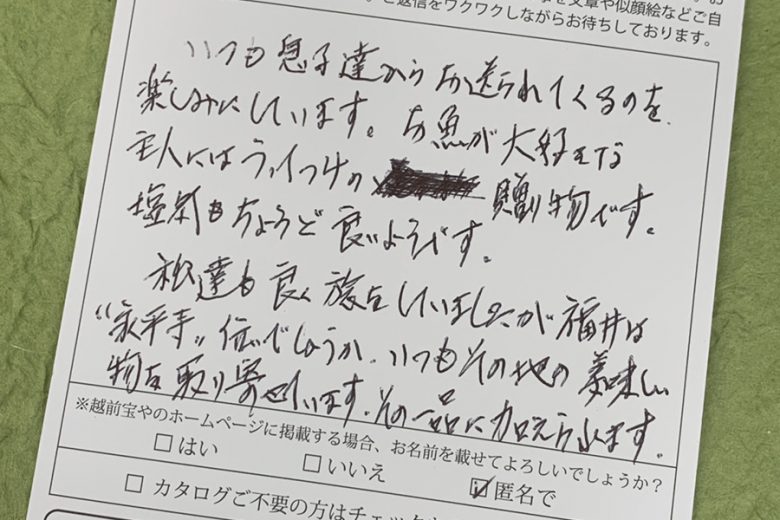 文章や似顔絵などご自
ご返信をワクワクしながらお待ちしております。
いつも息子達からお送られてくるのを
楽しみにしています。お魚が大好きな
主人にはうってつけの 贈り物です。
塩気もちょうど良いようです。
私達も良く旅をしていましたが福井は
"永平寺"位でしょうか、いつもその地の美味しい
物を取り寄せています。その一品に加えられます。
※越前宝やのホームページに掲載する場合、お名前を載せてよろしいでしょうか?
□はい □いいえ ☑匿名で
□カタログご不要の方はチェック